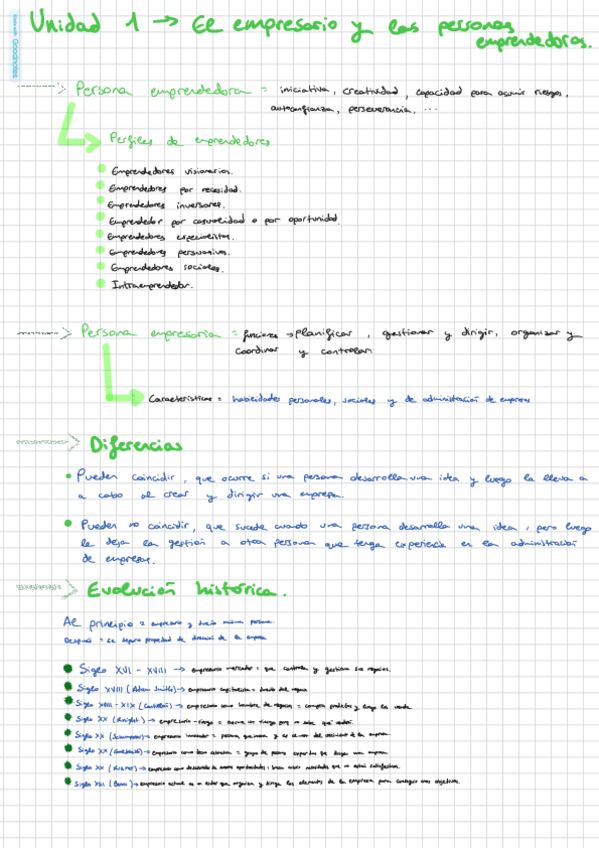 Unidad 1 → El empresario y las personas
emprendedoras.
Persona emprendedora = iniciativa, creatividad, capacidad para asumir riesgos,
autoconfianza, perseverancia, ...
Perfiles de emprendedores
Emprendedores visionarios.
Emprendedores por necesidad.
Emprendedores inversores.
Emprendedor por casualidad o por oportunidad.
Emprendedores especialistas.
Emprendedores persuasivos.
Emprendedores sociales.
Intraemprendedor.
Persona empresaria = funciones → planificar, gestionar y dirigir, organizar y
coordinar y controlar.
Características = habilidades personales, sociales y de administración de empresas
Diferencias
Pueden coincidir, que ocurre si una persona desarrolla una idea y luego la lleva a
a cabo al crear y dirigir una empresa.
Pueden no coincidir, que sucede cuando una persona desarrolla una idea, pero luego
le deja la gestión a otra persona que tenga experiencia en la administración
de empresas.
Evolución histórica.
Al principio = empresario y dueño misma persona.
Después = se separa propiedad de dirección de la empresa
Siglo XVI - XVIII → empresario mercader = que controla y gestiona sus negocios.
Siglo XVIII (Adam Smith) → empresario capitalista = dueño del negocio
Siglo XVIII - XIX (Cantillon) → empresario como hombre de negocios = compra productos y luego los vende.
Siglo XX (Knight) → empresario-riesgo = asume un riesgo porque no sabe qué
Siglo XX (Schumpeter) → empresario innovador = persona que innova y es
Siglo XX (Galbraith) → empresario como = grupo de personas expertas que dirigen una empresa.
Siglo XX (Kirzner) → empresario como de nuevas oportunidades = busca necesidades que no están satisfechas.
Siglo XXI → empresario actual es un que organiza y dirige los elementos de la empresa para conseguir unos objetivos.